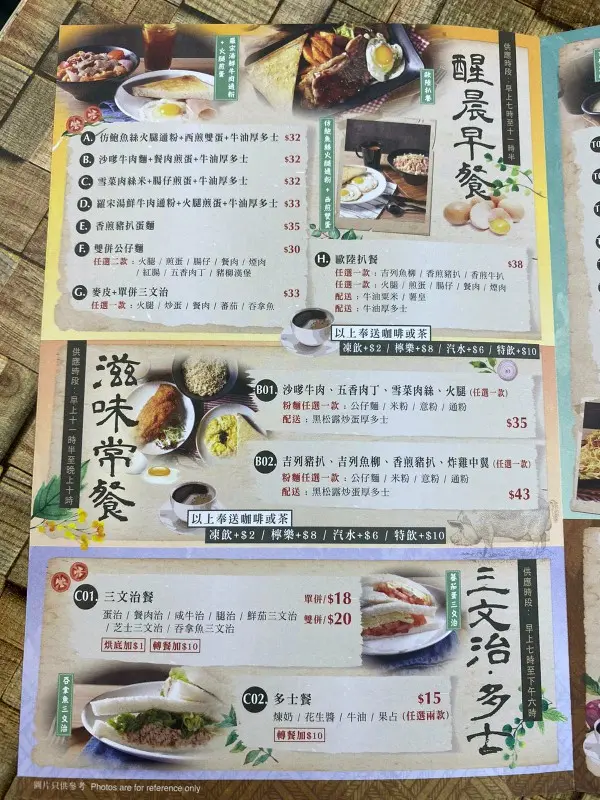 羅宋湯鮮牛肉通粉
+火腿煎蛋
歐陸扒餐
仿鮑魚絲火腿通粉+西煎雙蛋
醒晨早餐
供應時段：早上七時至十一時半
A. 仿鮑魚絲火腿通粉+西煎雙蛋+牛油厚多士 $32
B. 沙嗲牛肉麵+餐肉煎蛋+牛油厚多士 $32
C. 雪菜肉絲米+腸仔煎蛋+牛油厚多士 $32
D. 羅宋湯鮮牛肉通粉+火腿煎蛋+牛油厚多士 $33
E. 香煎豬扒蛋麵 $35
F. 雙併公仔麵 $30
任選二款：火腿 / 煎蛋 / 腸仔 / 餐肉 / 煙肉
/ 紅腸 / 五香肉丁 / 豬柳漢堡
G. 麥皮+單併三文治 $33
任選一款：火腿 / 炒蛋 / 餐肉 / 蕃茄 / 吞拿魚
H. 歐陸扒餐 $38
任選一款：吉列魚柳 / 香煎豬扒 / 香煎牛扒
任選一款：火腿 / 煎蛋 / 腸仔 / 餐肉 / 煙肉
配送：牛油粟米 / 薯皇
配送：牛油厚多士
以上奉送咖啡或茶
凍飲+$2 / 檸樂+$8 / 汽水+$6 / 特飲+$10
滋味常餐
供應時段：早上十一時半至晚上十時
B01. 沙嗲牛肉、五香肉丁、雪菜肉絲、火腿 (任選一款)
粉麵任選一款：公仔麵 / 米粉 / 意粉 / 通粉
配送：黑松露炒蛋厚多士 $35
B02. 吉列豬扒、吉列魚柳、香煎豬扒、炸雞中翼 (任選一款)
粉麵任選一款：公仔麵 / 米粉 / 意粉 / 通粉
配送：黑松露炒蛋厚多士 $43
以上奉送咖啡或茶
凍飲+$2 / 檸樂+$8 / 汽水+$6 / 特飲+$10
三文治·多士
供應時段：早上七時至下午六時
C01. 三文治餐 單併/$18
雙併/$20
蛋治 / 餐肉治 / 咸牛治 / 腿治 / 鮮茄三文治
/ 芝士三文治 / 吞拿魚三文治
烘底加$1 轉餐加$10
蕃茄蛋三文治
吞拿魚三文治
C02. 多士餐 $15
煉奶 / 花生醬 / 牛油 / 果占 (任選兩款)
轉餐加$10
圖片只供參考 Photos are for reference only